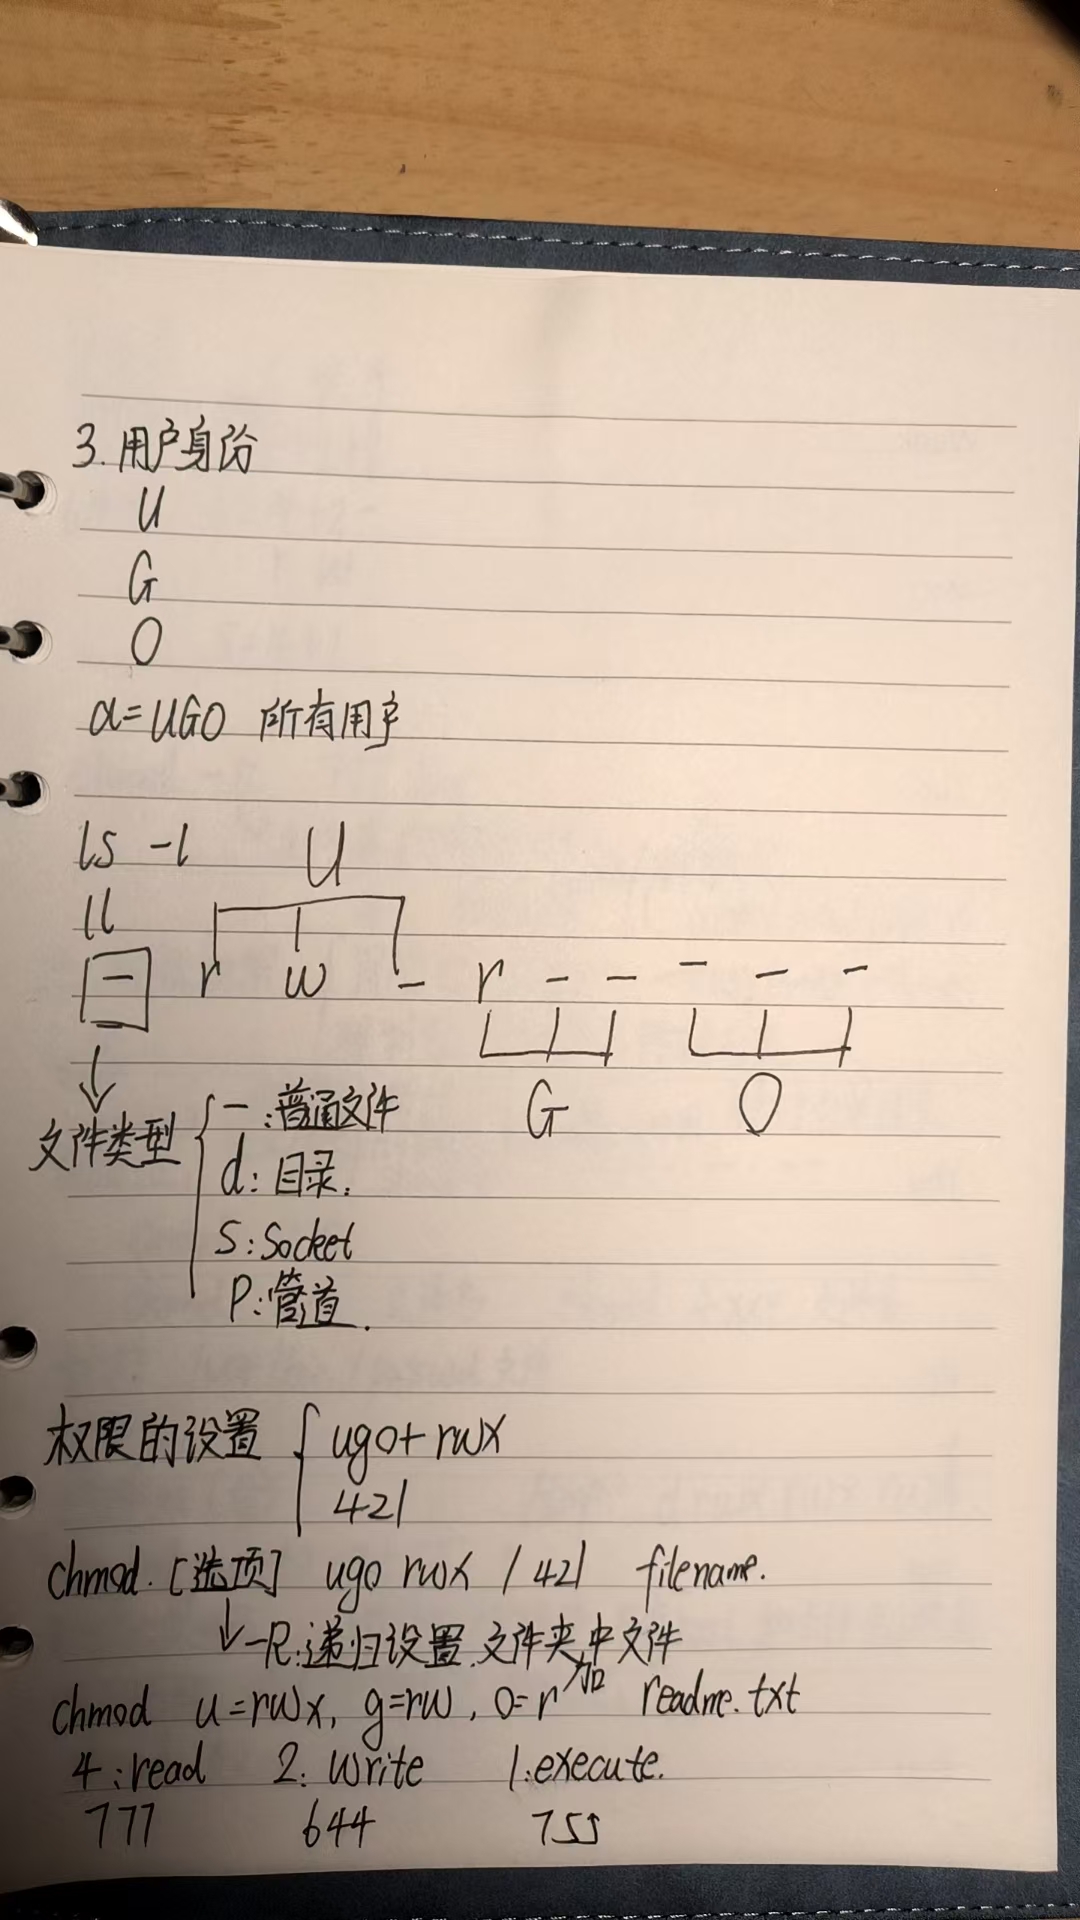 3. 用户身份
U
G
O
a=UGO 所有用户
ls -l
U
ll
- r w - r - - - - -
G O
文件类型
- : 普通文件
d: 目录.
S: Socket
P: 管道.
权限的设置
ugo+ rwx
421
chmod. [选项] ugo rwx / 421 filename.
-R: 递归设置.文件夹中文件
chmod u=rwx, g=rw, o=r 加 readme.txt
4: read 2: write 1: execute.
777 644 755